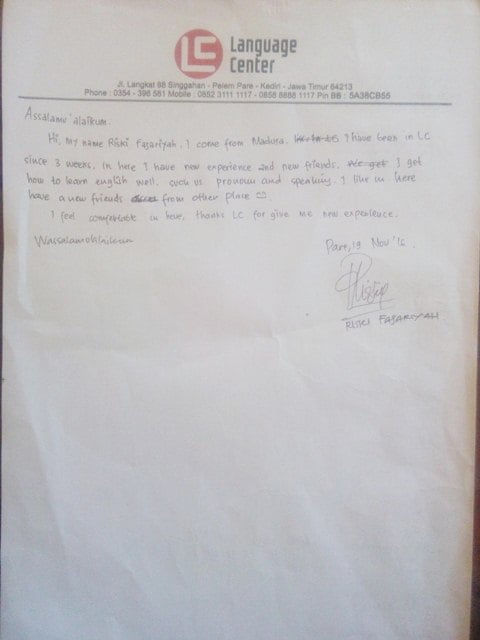 LC Language
Center
Jl. Langkat 88 Singgahan - Pelem Pare - Kediri - Jawa Timur 64213
Phone : 0354 - 396 561 Mobile : 0852 3111 1117 - 0858 8888 1117 Pin BB : 5A38CB55
Assalamu'alaikum.
Hi, my name Riski Fajariyah. I come from Madura. I have been in LC
since 3 weeks. in here I have new experience and new friends. I get
how to learn english well. such us pronoun and speaking. I like in here
have a new friends from other place ☺
I feel comfortable in here, thanks LC for give me new experience.
Wassalamualaikum
Pare, 19 Nov '16.
RISKI FAJARIYAH